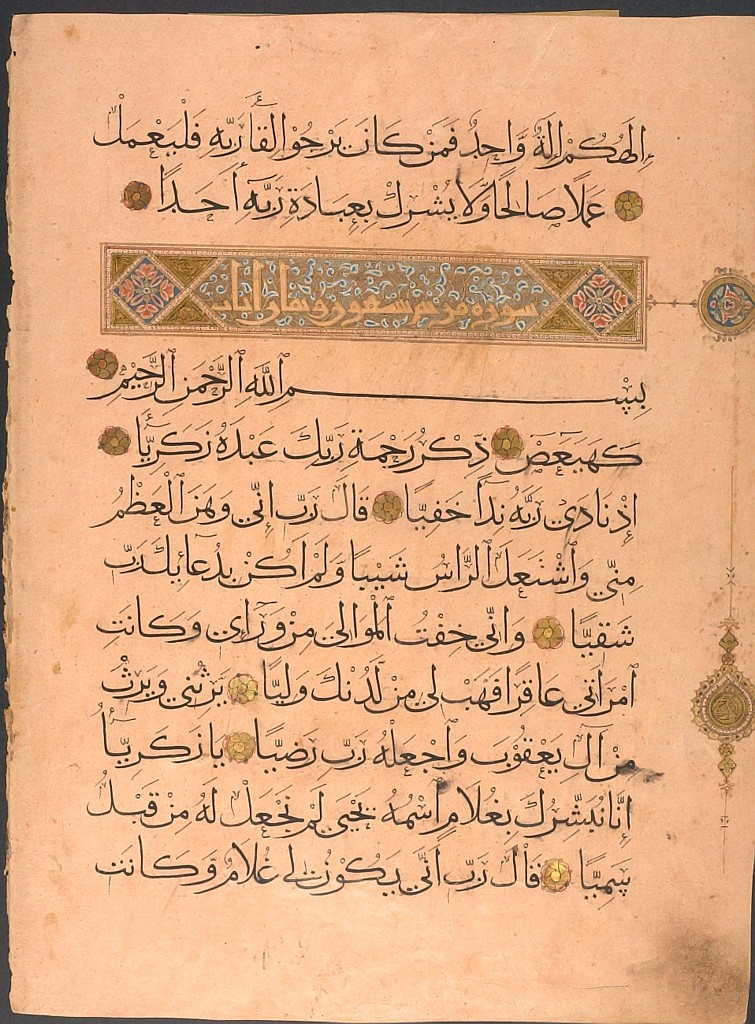 إِلَهُكُمْ إِلَهٌ وَّاحِدٌ فَمَنْ كَانَ يَرْجُوا لِقَآءَ رَبِّهِ فَلْيَعْمَلْ
عَمَلًا صَالِحًا وَّلَا يُشْرِكْ بِعِبَادَةِ رَبِّهِ أَحَدًا
سورة مريم تسعون وثمان ايات
بِسْمِ ٱللَّهِ ٱلرَّحْمَنِ ٱلرَّحِيمِ
كَهَيَعَصَ ذِكْرُ رَحْمَةِ رَبِّكَ عَبْدَهُ زَكَرِيَّآءَ
إِذْ نَادَى رَبَّهُ نِدَآءً خَفِيًّا قَالَ رَبِّ إِنِّي وَهَنَ ٱلْعَظْمُ
مِنِّي وَٱشْتَعَلَ ٱلرَّاسُ شَيْبًا وَلَمْ أَكُنْ بِدُعَآئِكَ رَبِّ
شَقِيًّا وَإِنِّي خِفْتُ ٱلْمَوَالِيَ مِنْ وَرَآءِي وَكَانَتِ
ٱمْرَأَتِي عَاقِرًا فَهَبْ لِي مِنْ لَّدُنْكَ وَلِيًّا يَرِثُنِي وَيَرِثُ
مِنْ آلِ يَعْقُوبَ وَٱجْعَلْهُ رَبِّ رَضِيًّا يَا زَكَرِيَّآءُ
إِنَّا نُبَشِّرُكَ بِغُلَامٍ ٱسْمُهُ يَحْيَى لَمْ نَجْعَلْ لَهُ مِنْ قَبْلُ
سَمِيًّا قَالَ رَبِّ أَنَّى يَكُونُ لِي غُلَامٌ وَّكَانَتِ